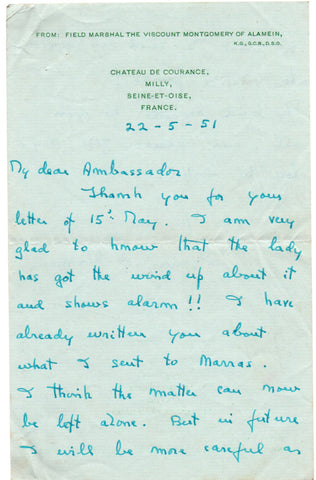 FROM: FIELD MARSHAL THE VISCOUNT MONTGOMERY OF ALAMEIN,
K.G., G.C.B., D.S.O.
CHATEAU DE COURANCE,
MILLY,
SEINE-ET-OISE,
FRANCE.
22-5-51
My dear Ambassador
Thank you for your
letter of 15th May. I am very
glad to know that the lady
has got the wind up about it
and shows alarm!! I have
already written you about
what I sent to Marras.
I think the matter can now
be left alone. But in future
I will be more careful as